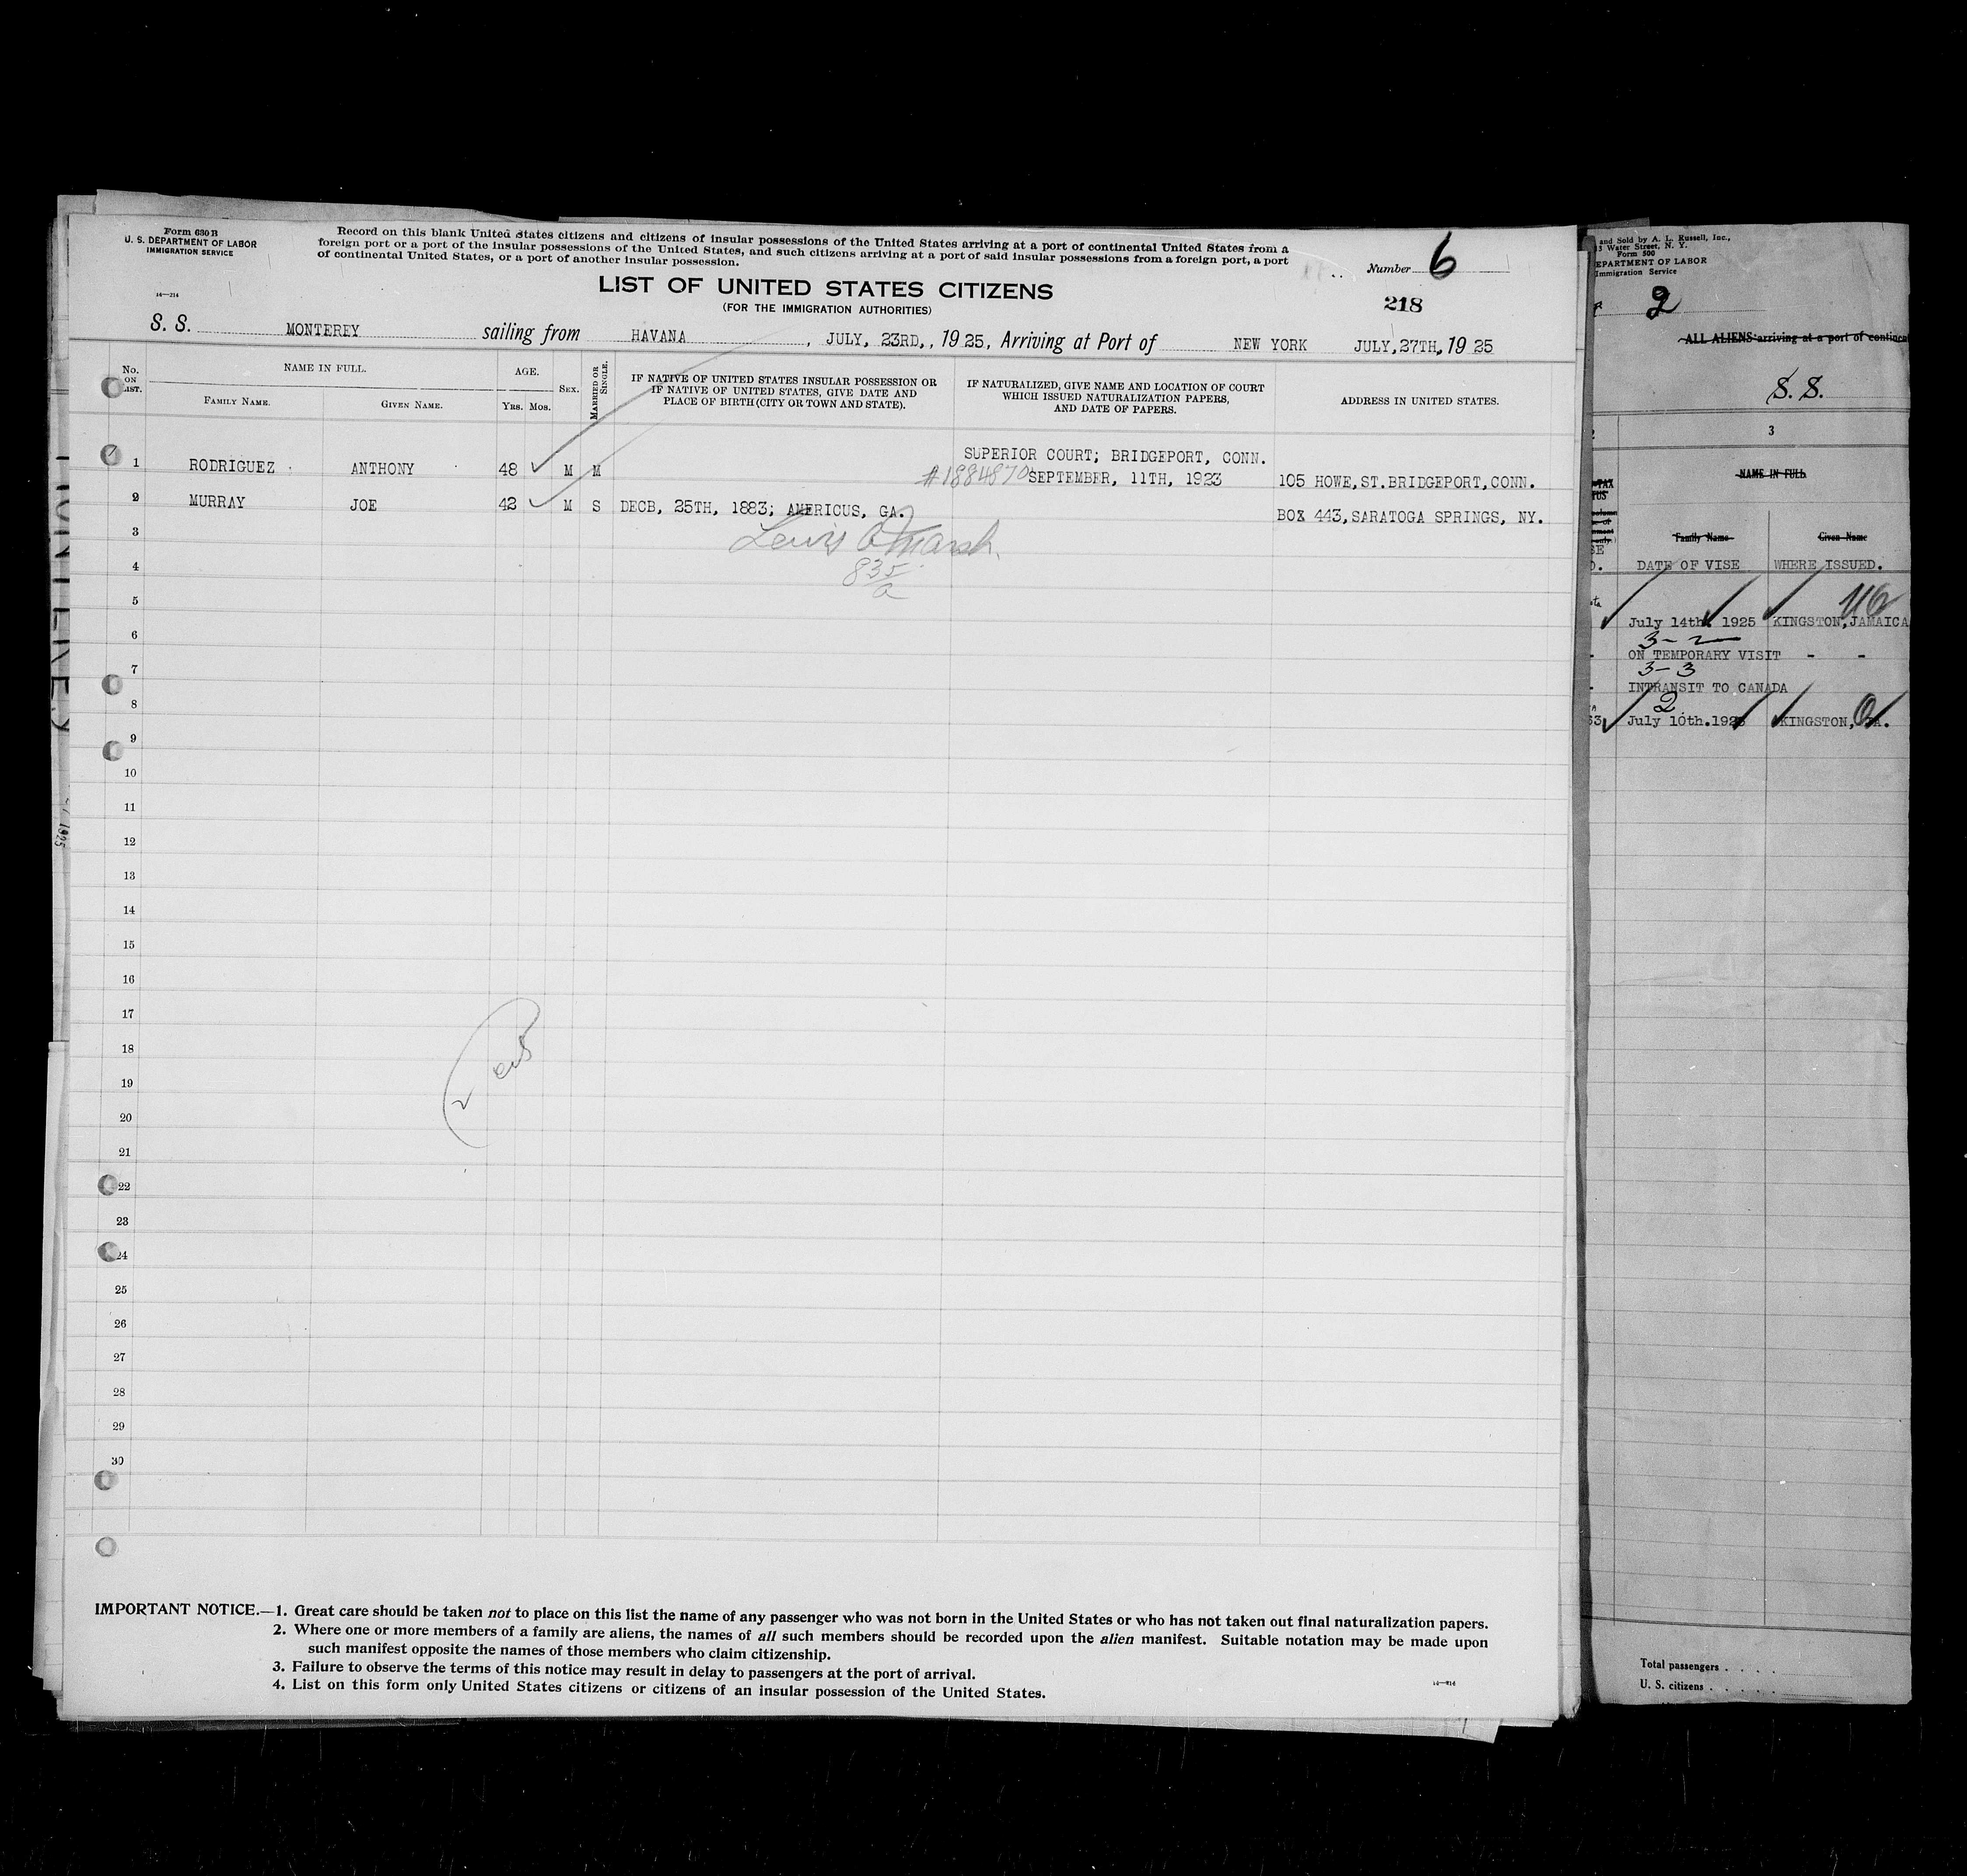 Form 630 B
U. S. DEPARTMENT OF LABOR
IMMIGRATION SERVICE
14—214
Record on this blank United States citizens and citizens of insular possessions of the United States arriving at a port of continental United States from a
foreign port or a port of the insular possessions of the United States, and such citizens arriving at a port of said insular possessions from a foreign port, a port
of continental United States, or a port of another insular possession.
Number 6
LIST OF UNITED STATES CITIZENS
(FOR THE IMMIGRATION AUTHORITIES)
218
S. S. MONTEREY sailing from HAVANA , JULY, 23RD,, 1925, Arriving at Port of NEW YORK JULY,27TH,1925
No. ON LIST.
NAME IN FULL.
FAMILY NAME. GIVEN NAME.
AGE.
YRS. MOS.
SEX.
MARRIED OR SINGLE.
IF NATIVE OF UNITED STATES INSULAR POSSESSION OR
IF NATIVE OF UNITED STATES, GIVE DATE AND
PLACE OF BIRTH (CITY OR TOWN AND STATE).
IF NATURALIZED, GIVE NAME AND LOCATION OF COURT
WHICH ISSUED NATURALIZATION PAPERS,
AND DATE OF PAPERS.
ADDRESS IN UNITED STATES.
SUPERIOR COURT; BRIDGEPORT, CONN.
1 RODRIGUEZ ANTHONY 48 M M #1884870 SEPTEMBER, 11TH, 1923 105 HOWE,ST.BRIDGEPORT,CONN.
2 MURRAY JOE 42 M S DECB, 25TH, 1883; AMERICUS, GA. BOX 443,SARATOGA SPRINGS, NY.
3
Lewis A Marsh
4
835
a
5
6
7
8
9
10
11
12
13
14
15
16
17
18
19
20
21
22
23
24
25
26
27
28
29
30
IMPORTANT NOTICE.—1. Great care should be taken not to place on this list the name of any passenger who was not born in the United States or who has not taken out final naturalization papers.
2. Where one or more members of a family are aliens, the names of all such members should be recorded upon the alien manifest. Suitable notation may be made upon
such manifest opposite the names of those members who claim citizenship.
3. Failure to observe the terms of this notice may result in delay to passengers at the port of arrival.
4. List on this form only United States citizens or citizens of an insular possession of the United States.
and Sold by A. L. Russell, Inc.,
Water Street, N. Y.
Form 500
EPARTMENT OF LABOR
Immigration Service
2
ALL ALIENS arriving at a port of continen
S. S.
3
NAME IN FULL
Family Name Given Name
DATE OF VISE WHERE ISSUED.
July 14th 1925 KINGSTON,JAMAICA
3-2
ON TEMPORARY VISIT - -
3-3
INTRANSIT TO CANADA
2
July 10th.1925 KINGSTON, JA.
Total passengers . . . .
U. S. citizens . . . . .